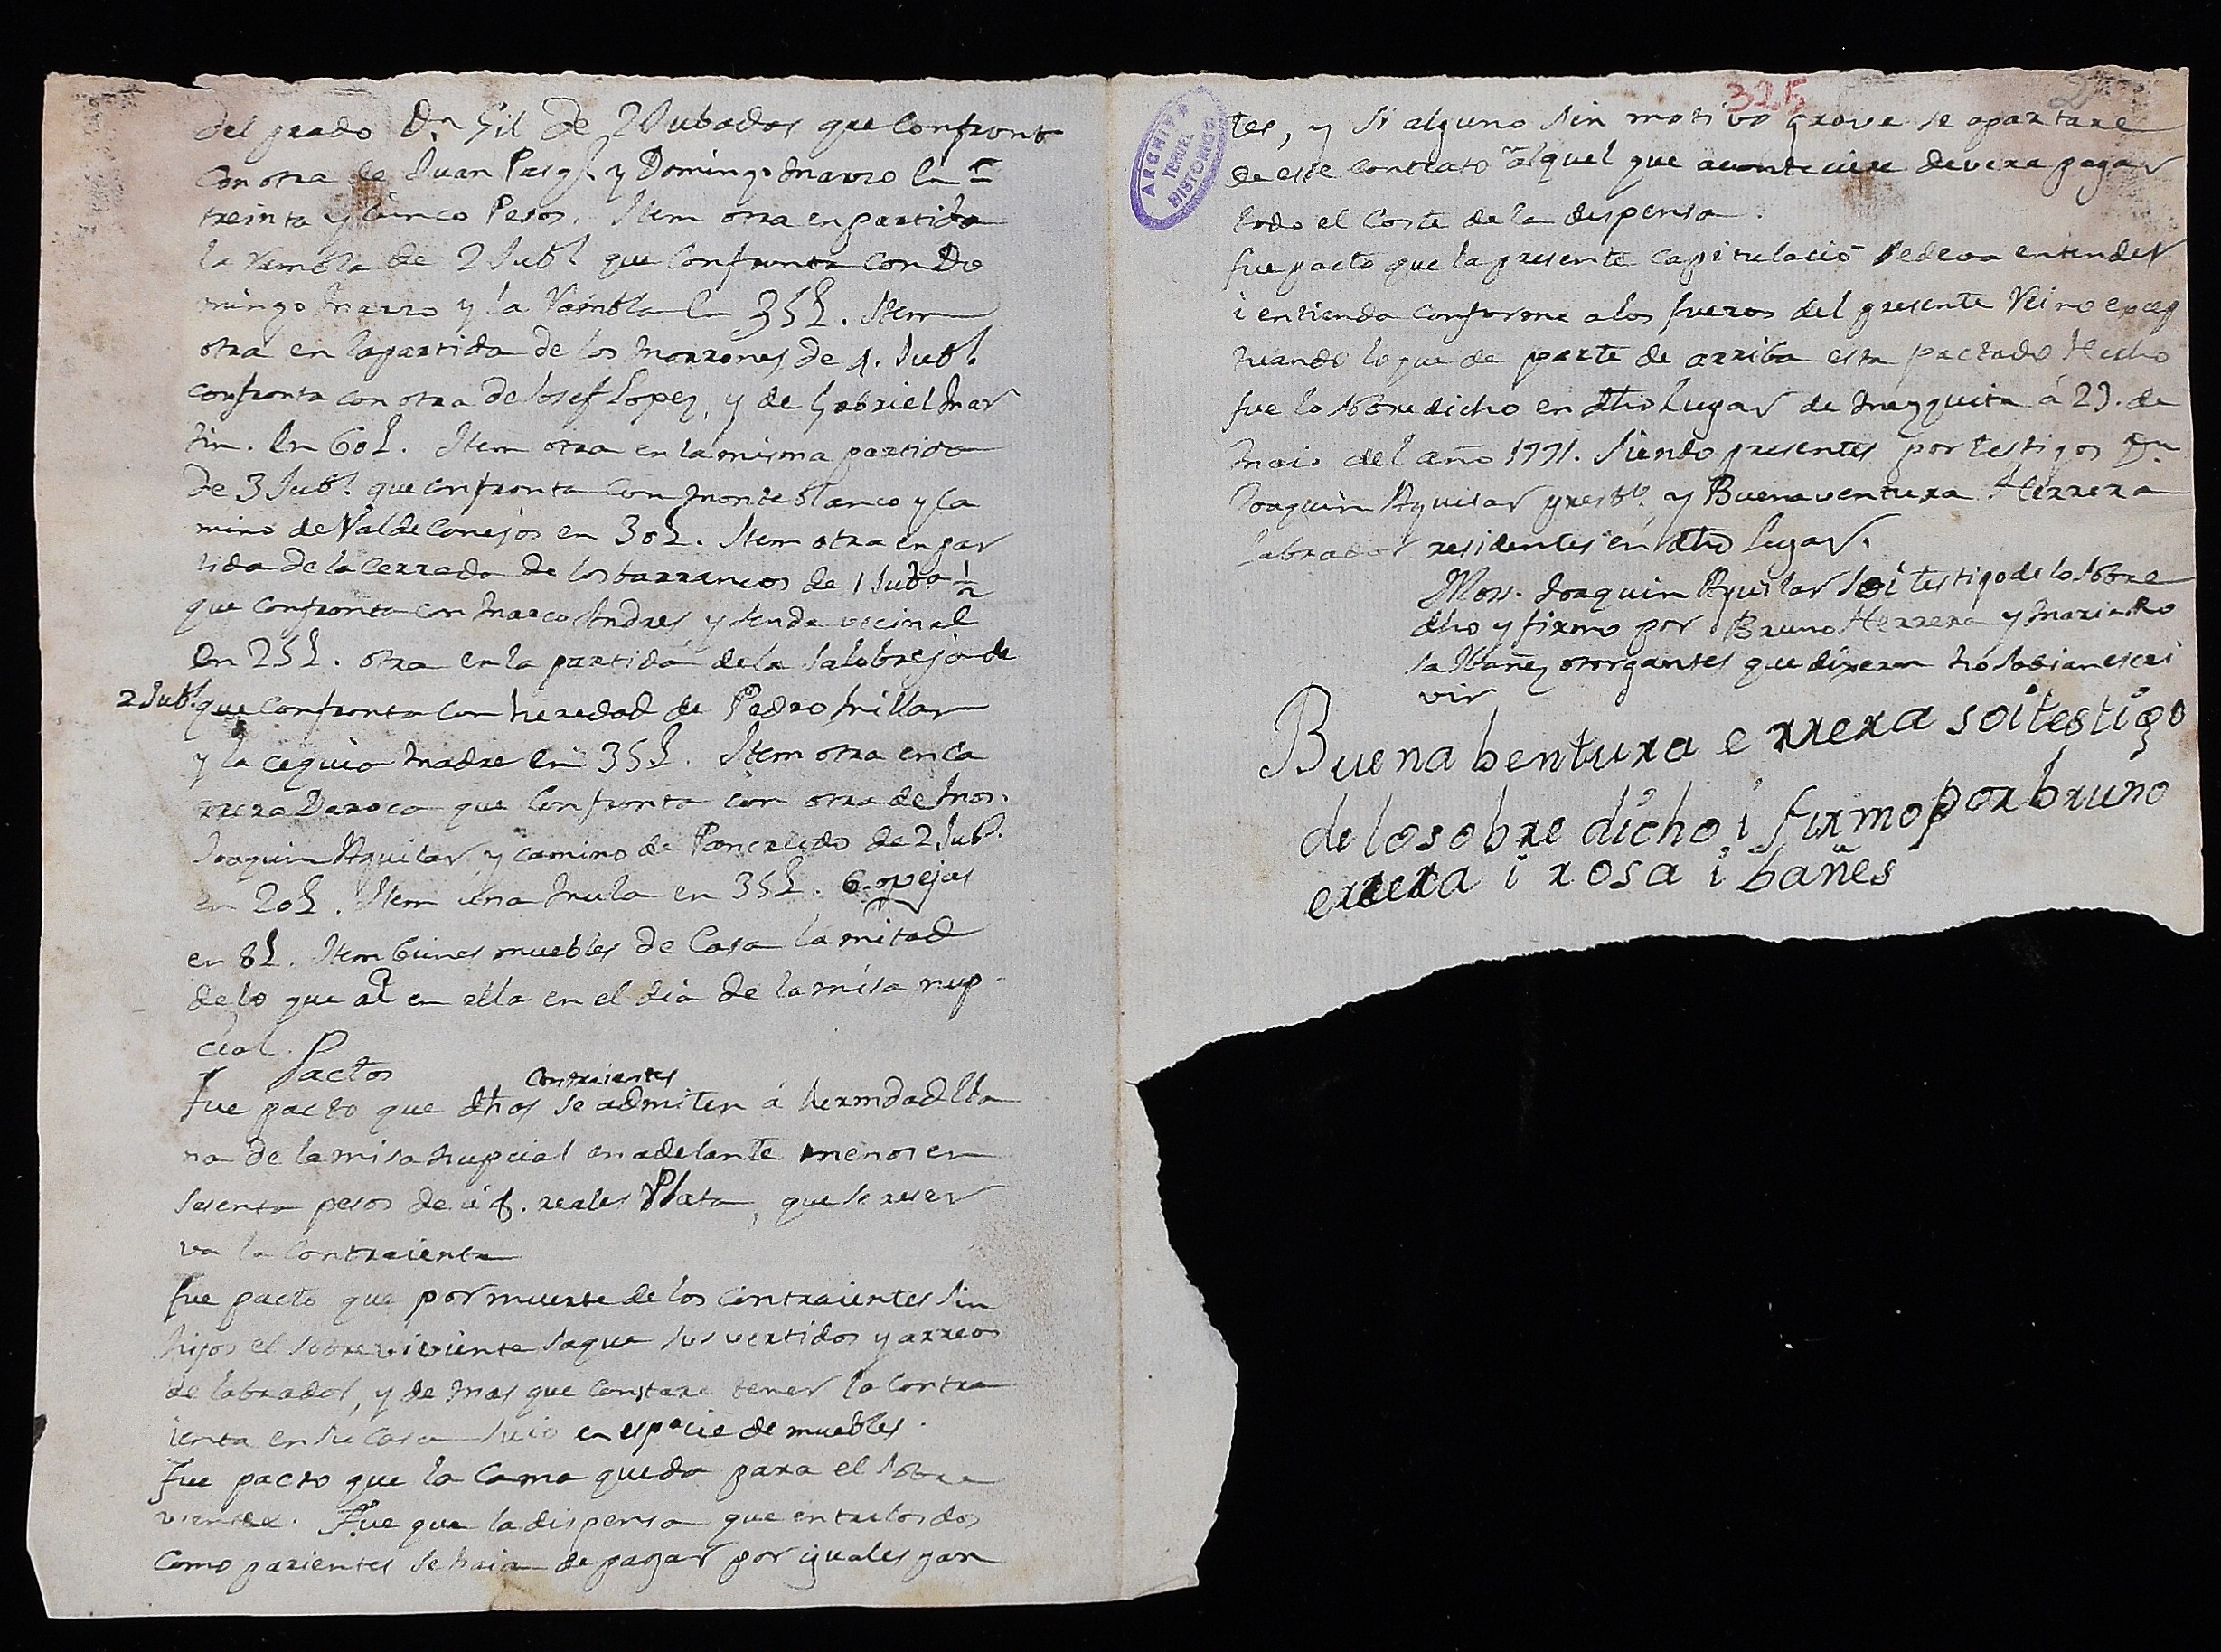 del prado Dn Gil de 2 Jubadas que confronta
con otra de Juan Pasql y Domingo Marzo en
treinta y cinco Pesos. Item otra en partida
la Rambla de 2 Jubs que confronta con Do
mingo Marzo y la Rambla en 35L. Item
otra en la partida de los Morrones de 4. Jubs.
confronta con otra de Josef Lopez, y de Gabriel Mar
tin. en 60L. Item otra en la misma partida
de 3 Jubs. que confronta con monte blanco y ca
mino de Valdeconejos en 30L. Item otra en par
tida de la cerrada de los barrancos de 1 Juba 1/2
que confronta con Marco Andres, y senda vecinal
en 25L. otra en la partida de la Salobreja de
2 Jubs. que confronta con heredad de Pedro Millan
y la cequia Madre en 35L. Item otra en ca
rrera Daroca que confronta con otra de Mos.
Joaquin Aguilar, y camino de Pancrudo de 2 Jubs.
en 20L. Item una Mula en 35L. 6. ovejas
en 8L. Item bienes muebles de Casa la mitad
de lo que ai en ella en el dia de la misa nup
cial.
Pactos
contraientes
Fue pacto que dhos se admiten á hermdad lla
na de la misa nupcial en adelante menos en
sesenta pesos de á 8. reales Plata, que se reser
va la contraienta
Fue pacto que por muerte de los contraientes sin
hijos el sobreviviente saque sus vestidos y arreos
de labrador, y de mas que constare tener la contra
ienta en su casa suio en especie de muebles.
Fue pacto que la cama queda para el sobre
viente. Fue que la dispensa que entre los dos
como parientes se haia de pagar por iguales par
325
2
ARCHIVO
TERUEL
HISTORICO
tes, y si alguno sin motivo grave se apartare
de este contrato al quel que aconteciere devera pagar
todo el coste de la dispensa.
fue pacto que la presente capitulació se deva entender
i entienda conforme a los fueros del presente Reino excep
tuando lo que de parte de arriba esta pactado Hecho
fue lo sobredicho en dho Lugar de Mezquita á 23. de
Maio del año 1771. Siendo presentes por testigos Dn
Joaquin Aguilar presbo. y Buenaventura Herrera
labrador residentes en dho Lugar.
Mosn. Joaquin Aguilar soi testigo de lo sobre
dho y firmo por Bruno Herrera y Maria Ro
sa Ibañez otorgantes que dixeron no sabian escri
vir
Buena bentura e rrera soi testigo
de lo sobre dicho i firmo por bruno
errera i rosa ibañes